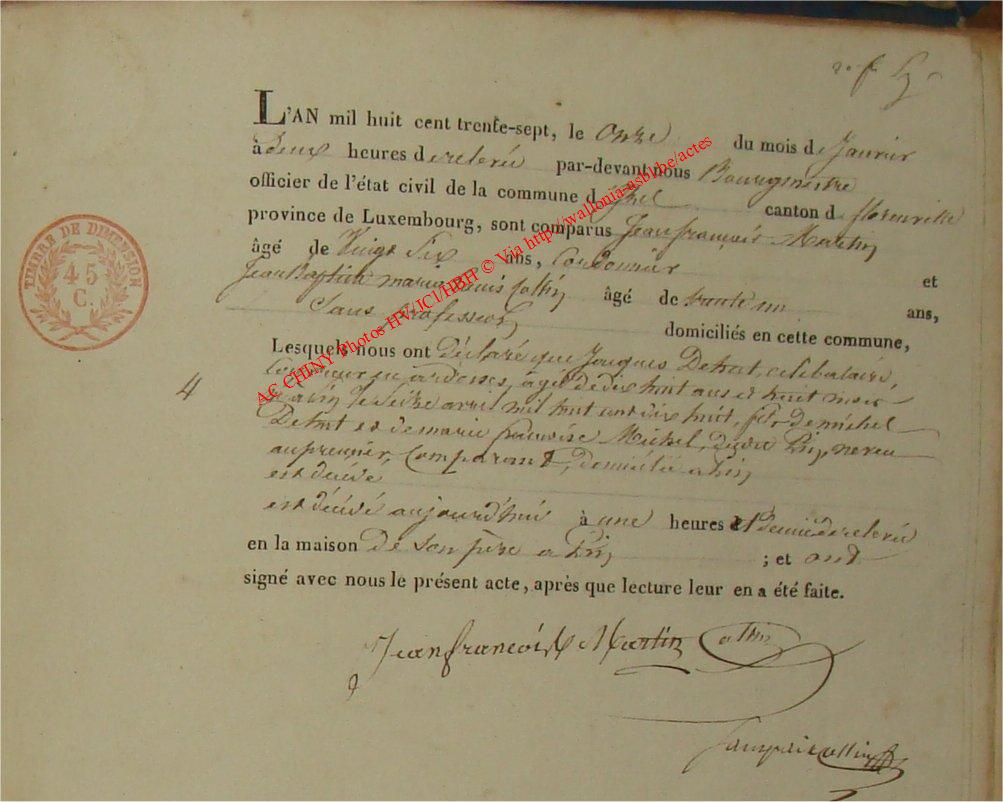 L'AN mil huit cent trente-sept, le onze du mois de Janvier
à deux heures de relevée par-devant nous Bourgmestre
officier de l'état civil de la commune d canton de florenville
province de Luxembourg, sont comparus Jean françois Martin
âgé de Vingt Six ans, Cordonnier et
Jean Baptiste marie âgé de trente un ans,
Sans profession domiciliés en cette commune,
Lesquels nous ont déclaré que Jacques célibataire,
Couvreur en ardoises, âgé de dix huit ans et huit mois
4
le seize avril mil huit cent dix huit, fils de michel
et de marie françoise Michel, neveu
au premier Comparant, domicilié a
est décédé
est décédé aujourd'hui à une heures et Demie de relevée
en la maison de son père a ; et ont
signé avec nous le présent acte, après que lecture leur en a été faite.
Jean françois Martin
TIMBRE DE DIMENSION
45
C.
AC CHINY Photos HV/JCI/HBH © Via http://wallonia-asbl.be/actes